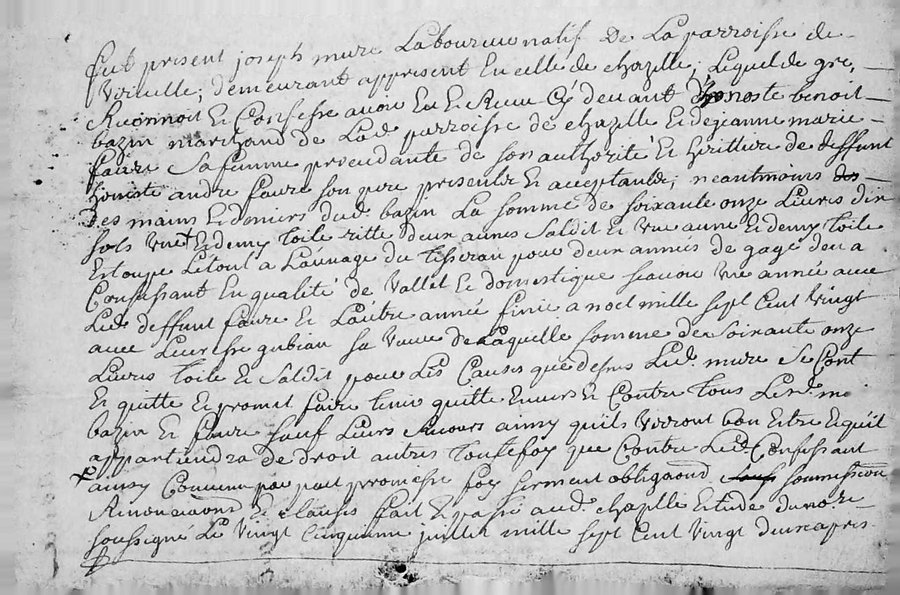 fut present joseph mure Laboureur natif De La parroisse de
Viricelle, demeurant appresent En celle de chazelle; Lequel de gre,
Reconnoit Et Confesse avoir Eu Et Receu Cy devant d'honeste benoit
bazin marchand de Lad parroisse de chazelle Et de jeanne marie
faure sa femme procedante de son authorité Et heritiere de deffunt
honeste andre faure son pere presente Et acceptante; neantmoins
Des mains Et deniers dud bazin La somme de soixante onze Livres dix
sols une Et demy toile ritte deux aunes saldit Et une aune Et demy toile
Estoupe Le tout a L'aunage du tisseran pour deux années de gage dou a
Confessant En qualité de vallet Et domestique scavoir une année avec
Led deffunt faure Et L'autre année finie a noel mille sept Cent vingt
avec Lucresse gubian sa veuve de Laquelle somme de soixante onze
Livres toile Et saldit pour Les Causes que desus Led. mure se Cont
Et quitte Et promet faire tenir quitte Envers Et Contre tous Lesd. m
bazin Et faure sauf Leurs Recours ainsy quils verront bon Estre Et quil
appartiendra de droit autres toutefoy que Contre Led Confessant
ainsy Convenu par pait promesse foy serment obligaond soumission
Renonciaond Et clauses fait & passé aud. chazelle Estude du no.re
soussigné Le vingt Cinquieme juillet mille sept Cent vingt deux apres